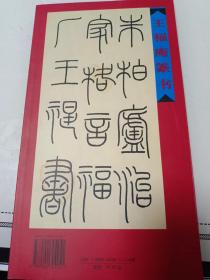 王福庵篆书
朱柏廬治
家格言福
厂王禔書